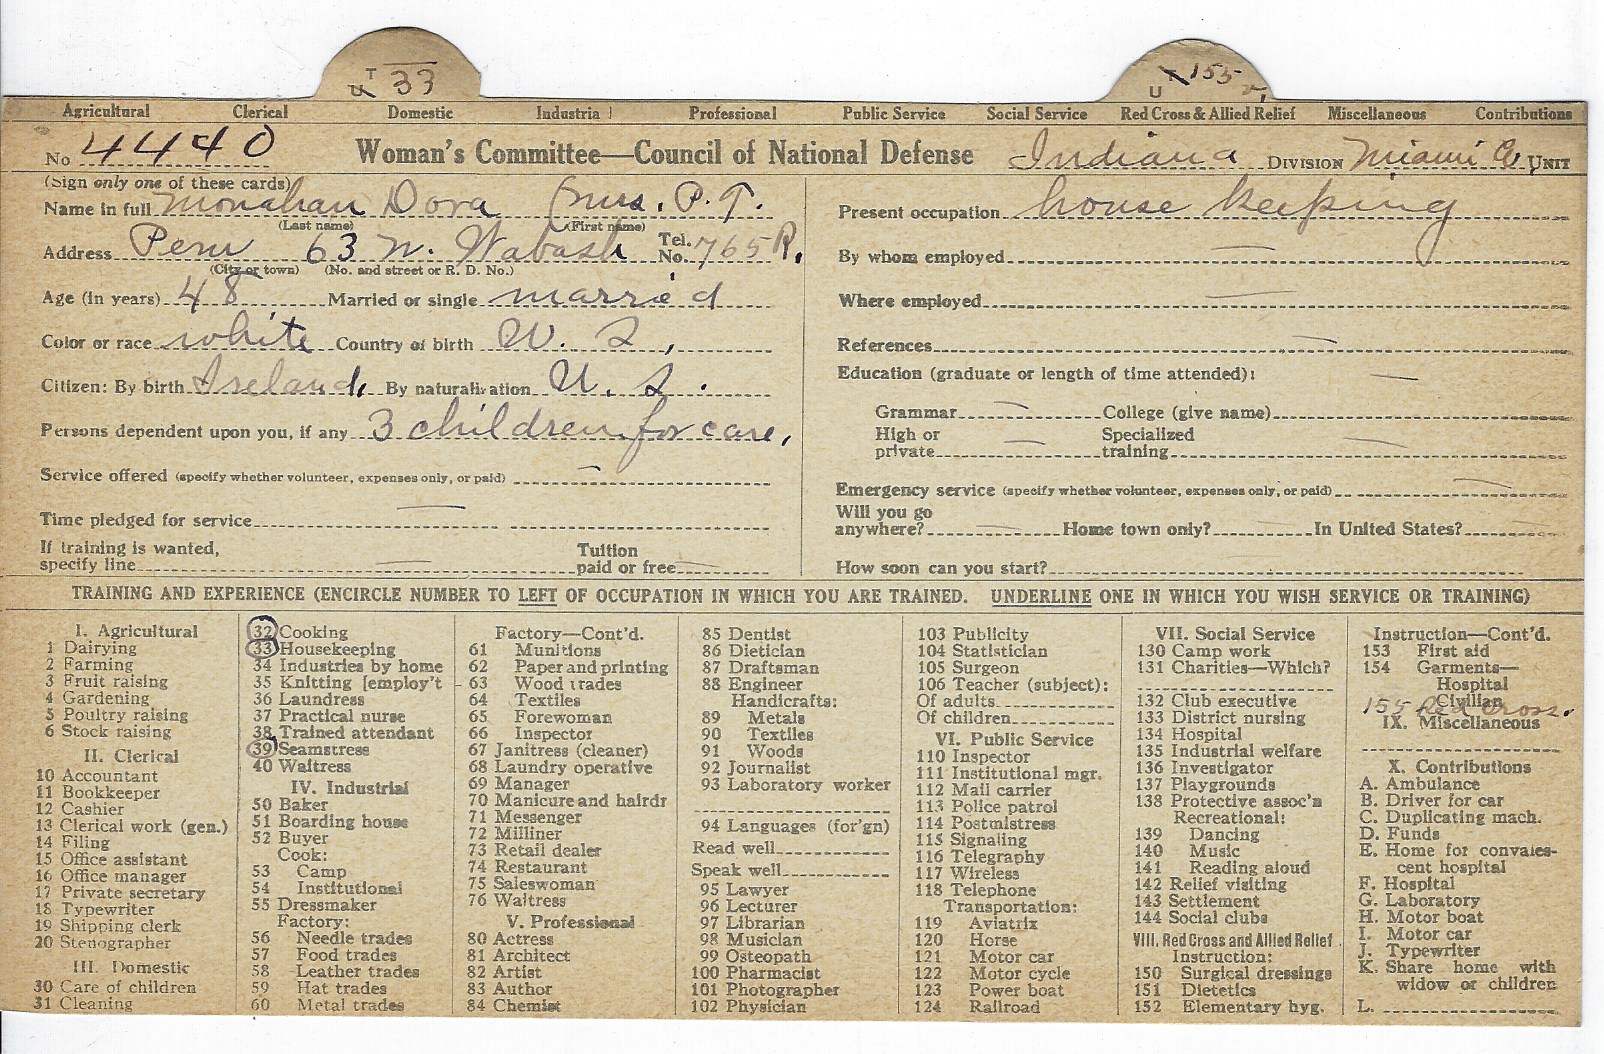 T 33
U 155
U
Agricultural Clerical Domestic Industrial Professional Public Service Social Service Red Cross & Allied Relief Miscellaneous Contributions
No 4440 Woman's Committee—Council of National Defense Indiana DIVISION Miami Co. UNIT
(Sign only one of these cards)
Name in full Monahan Dora (Mrs. P. T.
(Last name) (First name)
Address Peru 63 W. Wabash Tel. No. 765 R.
(City or town) (No. and street or R. D. No.)
Age (in years) 48 Married or single married
Color or race white Country of birth U. S.
Citizen: By birth Ireland, By naturalization U. S.
Persons dependent upon you, if any 3 children for care,
Service offered (specify whether volunteer, expenses only, or paid) —
Time pledged for service —
If training is wanted,
specify line — Tuition paid or free —
Present occupation house keeping
By whom employed —
Where employed —
References —
Education (graduate or length of time attended): —
Grammar — College (give name)
High or private — Specialized training —
Emergency service (specify whether volunteer, expenses only, or paid) —
Will you go
anywhere? — Home town only? — In United States? —
How soon can you start?
TRAINING AND EXPERIENCE (ENCIRCLE NUMBER TO LEFT OF OCCUPATION IN WHICH YOU ARE TRAINED. UNDERLINE ONE IN WHICH YOU WISH SERVICE OR TRAINING)
I. Agricultural
1 Dairying
2 Farming
3 Fruit raising
4 Gardening
5 Poultry raising
6 Stock raising
II. Clerical
10 Accountant
11 Bookkeeper
12 Cashier
13 Clerical work (gen.)
14 Filing
15 Office assistant
16 Office manager
17 Private secretary
18 Typewriter
19 Shipping clerk
20 Stenographer
III. Domestic
30 Care of children
31 Cleaning
32 Cooking
33 Housekeeping
34 Industries by home
35 Knitting [employ't
36 Laundress
37 Practical nurse
38 Trained attendant
39 Seamstress
40 Waitress
IV. Industrial
50 Baker
51 Boarding house
52 Buyer
Cook:
53 Camp
54 Institutional
55 Dressmaker
Factory:
56 Needle trades
57 Food trades
58 Leather trades
59 Hat trades
60 Metal trades
Factory—Cont'd.
61 Munitions
62 Paper and printing
63 Wood trades
64 Textiles
65 Forewoman
66 Inspector
67 Janitress (cleaner)
68 Laundry operative
69 Manager
70 Manicure and hairdr
71 Messenger
72 Milliner
73 Retail dealer
74 Restaurant
75 Saleswoman
76 Waitress
V. Professional
80 Actress
81 Architect
82 Artist
83 Author
84 Chemist
85 Dentist
86 Dietician
87 Draftsman
88 Engineer
Handicrafts:
89 Metals
90 Textiles
91 Woods
92 Journalist
93 Laboratory worker
94 Languages (for'gn)
Read well
Speak well
95 Lawyer
96 Lecturer
97 Librarian
98 Musician
99 Osteopath
100 Pharmacist
101 Photographer
102 Physician
103 Publicity
104 Statistician
105 Surgeon
106 Teacher (subject):
Of adults
Of children
VI. Public Service
110 Inspector
111 Institutional mgr.
112 Mail carrier
113 Police patrol
114 Postmistress
115 Signaling
116 Telegraphy
117 Wireless
118 Telephone
Transportation:
119 Aviatrix
120 Horse
121 Motor car
122 Motor cycle
123 Power boat
124 Railroad
VII. Social Service
130 Camp work
131 Charities—Which?
132 Club executive
133 District nursing
134 Hospital
135 Industrial welfare
136 Investigator
137 Playgrounds
138 Protective assoc'n
Recreational:
139 Dancing
140 Music
141 Reading aloud
142 Relief visiting
143 Settlement
144 Social clubs
VIII. Red Cross and Allied Relief
Instruction:
150 Surgical dressings
151 Dietetics
152 Elementary hyg.
Instruction—Cont'd.
153 First aid
154 Garments—
Hospital
Civilian
155 Red Cross.
IX. Miscellaneous
X. Contributions
A. Ambulance
B. Driver for car
C. Duplicating mach.
D. Funds
E. Home for convales-
cent hospital
F. Hospital
G. Laboratory
H. Motor boat
I. Motor car
J. Typewriter
K. Share home with
widow or children
L.